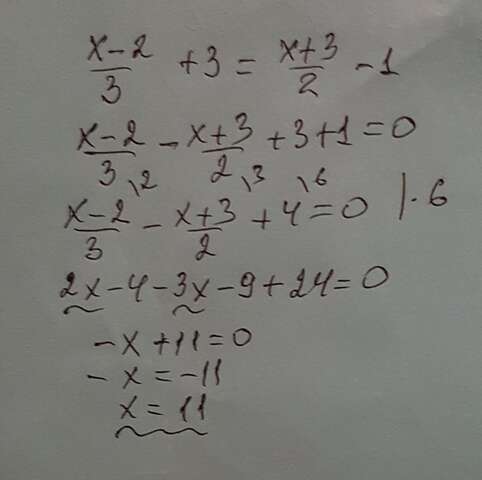 x-2/3 + 3 = x+3/2 - 1
x-2/3 - x+3/2 + 3 + 1 = 0
\2 \3 \6
x-2/3 - x+3/2 + 4 = 0 |·6
2x - 4 - 3x - 9 + 24 = 0
-x + 11 = 0
-x = -11
x = 11